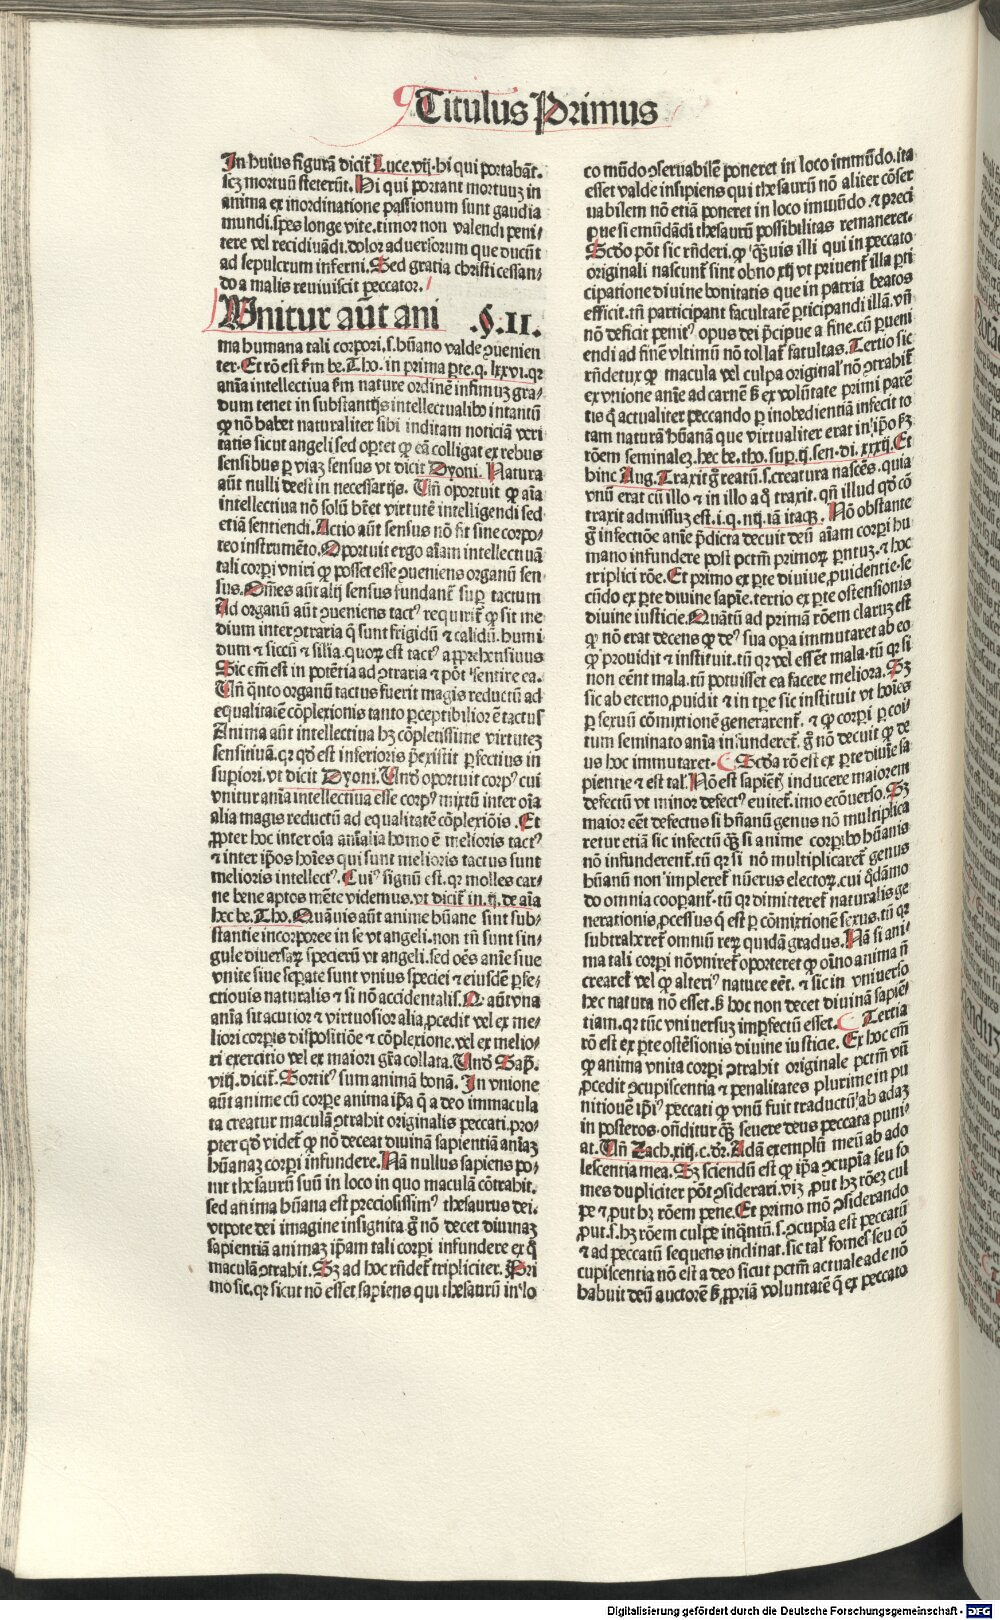 Titulus Primus
In huius figurā dicit̄ Luce.vij.hi qui portabāt.
scz mortuū steterūt. Hi qui portant mortuuz in
anima ex inordinatione passionum sunt gaudia
mundi.spes longe vite.timor non valendi peni/
tere vel recidiuādi.dolor aduersorum que ducūt
ad sepulcrum inferni. Sed gratia christi cessan/
do a malis reuiuiscit peccator.
Vnitur aūt ani .§.II.
ma humana tali corpori.s.hūano valde ꝯuenien
ter. Et rō est ẜm be.Tho.in prima ꝑte.q.lxxvi.qꝛ
anīa intellectiua ẜm nature ordinē infimuz gra/
dum tenet in substantijs intellectualibꝰ intantū
ꝙ nō habet naturaliter sibi inditam noticiā veri
tatis sicut angeli sed oꝑtet ꝙ eā colligat ex rebus
sensibus ꝑ viaz sensus vt dicit Dyoni. Natura
aūt nulli deest in necessarijs. Vn̄ oportuit ꝙ aīa
intellectiua nō solū hr̄et virtutē intelligendi sed
etiā sentiendi. Actio aūt sensus nō fit sine corpo/
reo instrumēto. Oportuit ergo aīam intellectiuā
tali corpꝑi vniri ꝙ posset esse ꝯueniens organū sen
sus. Om̄es aūt alij sensus fundant̄ suꝑ tactum
Ad organū aūt ꝯueniens tactꝰ requirit̄ ꝙ sit me
dium inter ꝯtraria q̄ sunt frigidū ⁊ calidū.humi
dum ⁊ siccū ⁊ silia.quoꝝ est tactꝰ apprehensiuus
Sic em̄ est in potētia ad ꝯtraria ⁊ pōt sentire ea.
Vn̄ q̄nto organū tactus fuerit magis reductū ad
equalitatē cōplexionis tanto ꝑceptibilior ē tactus
Anima aūt intellectiua hꝫ cōpletissime virtutez
sensitiuā.qꝛ qd̄ est inferioris p̄existit ꝑfectius in
suꝑiori.vt dicit Dyoni. Vnd̄ oportuit corpꝰ cui
vnitur anīa intellectiua esse corpꝰ mixtū inter oīa
alia magis reductū ad equalitatē cōplexiōis. Et
ꝓpter hoc inter oīa anīalia homo ē melioris tactꝰ
⁊ inter ip̄os hoīes qui sunt melioris tactus sunt
melioris intellectꝰ. Cuiꝰ signū est.qꝛ molles car/
ne bene aptos mēte videmus.vt dicit̄ in.ij.de aīa
hec be.Tho. Quāuis aūt anime hūane sint sub/
stantie incorporee in se vt angeli.non tn̄ sunt sin/
gule diuersaꝝ specierū vt angeli.sed oēs anīe siue
vnite siue seꝑate sunt vnius speciei ⁊ eiusdē ꝑfe/
ctionis naturalis ⁊ si nō accidentalis. Q aūt vna
anīa sit acutior ⁊ virtuosior alia ꝓcedit vel ex me/
liori corꝑis dispositiōe ⁊ cōplexione.vel ex melio/
ri exercitio vel ex maiori gr̄a collata. Vnd̄ Sap̄.
viij.dicit̄. Sortitꝰ sum animā bonā. In vnione
aūt anime cū corꝑe anima ip̄a q̄ a deo immacula
ta creatur maculā ꝯtrahit originalis peccati.pro/
pter qd̄ videt̄ ꝙ nō deceat diuinā sapientiā anīaz
hūanaz corꝑi infundere. Nā nullus sapiens po/
nit thesaurū suū in loco in quo maculā cōtrahit.
sed anima hūana est preciosissimꝰ thesaurus dei.
vtpote dei imagine insignita gͦ nō decet diuinaz
sapientiā animaz ip̄am tali corꝑi infundere ex q̊
maculā ꝯtrahit. Sꝫ ad hoc rn̄det̄ tripliciter. Pri
mo sic.qꝛ sicut nō esset sapiens qui thesaurū in lo
co mūdo ꝯseruabilē poneret in loco immūdo.ita
esset valde insipiens qui thesaurū nō aliter cōser
uabilem nō etiā poneret in loco immūdo.⁊ preci
pue si emūdādi thesaurū possibilitas remaneret.
Scd̄o pōt sic rn̄deri.ꝙ q̄uis illi qui in peccato
originali nascunt̄ sint obnoxij vt priuent̄ illa ꝑti
cipatione diuine bonitatis que in patria beatos
efficit.tn̄ participant facultatē ꝑticipandi illā.vn̄
nō deficit penitꝰ opus dei p̄cipue a fine.cū ꝑueni
endi ad finē vltimū nō tollat̄ facultas. Tertio sic
rn̄detur ꝙ macula vel culpa original̓ nō ꝯtrahit̄
ex vnione anīe ad carnē ꝫ ex volūtate primi parē
tis q̄ actualiter peccando ꝑ inobedientiā infecit to
tam naturā hūanā que virtualiter erat in ip̄o ẜꝫ
rōem seminalez.hec be.tho.suꝑ.ij.sen.di.xxxij. Et
hinc Aug. Traxit gͦ reatū.s.creatura nascēs.quia
vnū erat cū illo ⁊ in illo a q̊ traxit.qn̄ illud qd̄ cō
traxit admissuz est.i.q.iiij.iā itaqꝫ. Nō obstante
gͦ infectiōe anīe p̄dicta decuit deū aīam corꝑi hu
mano infundere post pctm̄ primoꝝ ꝑntuz.⁊ hoc
triplici rōe. Et primo ex ꝑte diuine ꝓuidentie.se
cūdo ex ꝑte diuine sapīe.tertio ex ꝑte ostensionis
diuine iusticie. Quātū ad primā rōem claruz est
ꝙ nō erat decens ꝙ deꝰ sua oꝑa immutaret ab eo
ꝙ prouidit ⁊ instituit.tū qꝛ vel essēt mala.tū qꝛ si
non eēnt mala.tū potuisset ea facere meliora. Sꝫ
sic ab eterno ꝓuidit ⁊ in tꝑe sic instituit vt hoīes
ꝑ sexuū cōmixtionē generarent̄.⁊ ꝙ corꝑi ꝑ coi/
tum seminato anīa infunderet̄.gͦ nō decuit ꝙ de
us hoc immutaret. Scd̄a rō est ex ꝑte diuīe sa
pientie ⁊ est tal̓. Nō est sapiētꝭ inducere maiorem
defectū vt minor defectꝰ euitet̄.imo ecōuerso. Sꝫ
maior eēt defectus si hūanū genus nō multiplica
retur etiā sic infectū qꝫ si anime corꝑibꝰ hūanis
nō infunderent̄.tū qꝛ si nō multiplicaret̄ genus
hūanū non impleret̄ nūerus electoꝝ.cui q̊dāmo
do omnia cooꝑant̄.tū qꝛ dimitteret̄ naturalis ge
nerationis ꝓcessus q̄ est ꝑ cōmixtionē sexus.tū qꝛ
subtraheret̄ omniū reꝝ quidā gradus. Nā si ani/
ma tali corꝑi nō vniret̄ oporteret ꝙ oīno anima nō
crearet̄ vel ꝙ alteriꝰ nature eēt.⁊ sic in vniuerso
hec natura nō esset.ꝫ hoc non decet diuinā sapiē/
tiam.qꝛ tūc vniuersuz imꝑfectū esset. Tertia
rō est ex ꝑte ostēsionis diuine iusticie. Ex hoc em̄
ꝙ anima vnita corꝑi ꝯtrahit originale pctm̄ vn̄
ꝓcedit ꝯcupiscentia ⁊ penalitates plurime in pu
nitionē ip̄iꝰ peccati ꝙ vnū fuit traductū ab adaz
in posteros.on̄ditur qꝫ seuere deus peccata puni/
at. Vn̄ Zach.xiij.c.dꝛ. Adā exemplū meū ab ado
lescentia mea. Sꝫ sciendū est ꝙ ip̄a ꝯcupīa seu fo
mes dupliciter pōt ꝯsiderari.viz ꝓut hꝫ rōez cul
pe ⁊ ꝓut hꝫ rōem pene. Et primo mō ꝯsiderando
ꝓut.s.hꝫ rōem culpe inq̄ntū.s.ꝯcupīa est peccatū
⁊ ad peccatū sequens inclinat.sic tal̓ fomes seu cō
cupiscentia nō est a deo sicut pctm̄ actuale a deo nō
habuit deū auctorē ꝫ ꝓpriā voluntatē q̄ ex peccato
Digitalisierung gefördert durch die Deutsche Forschungsgemeinschaft - DFG